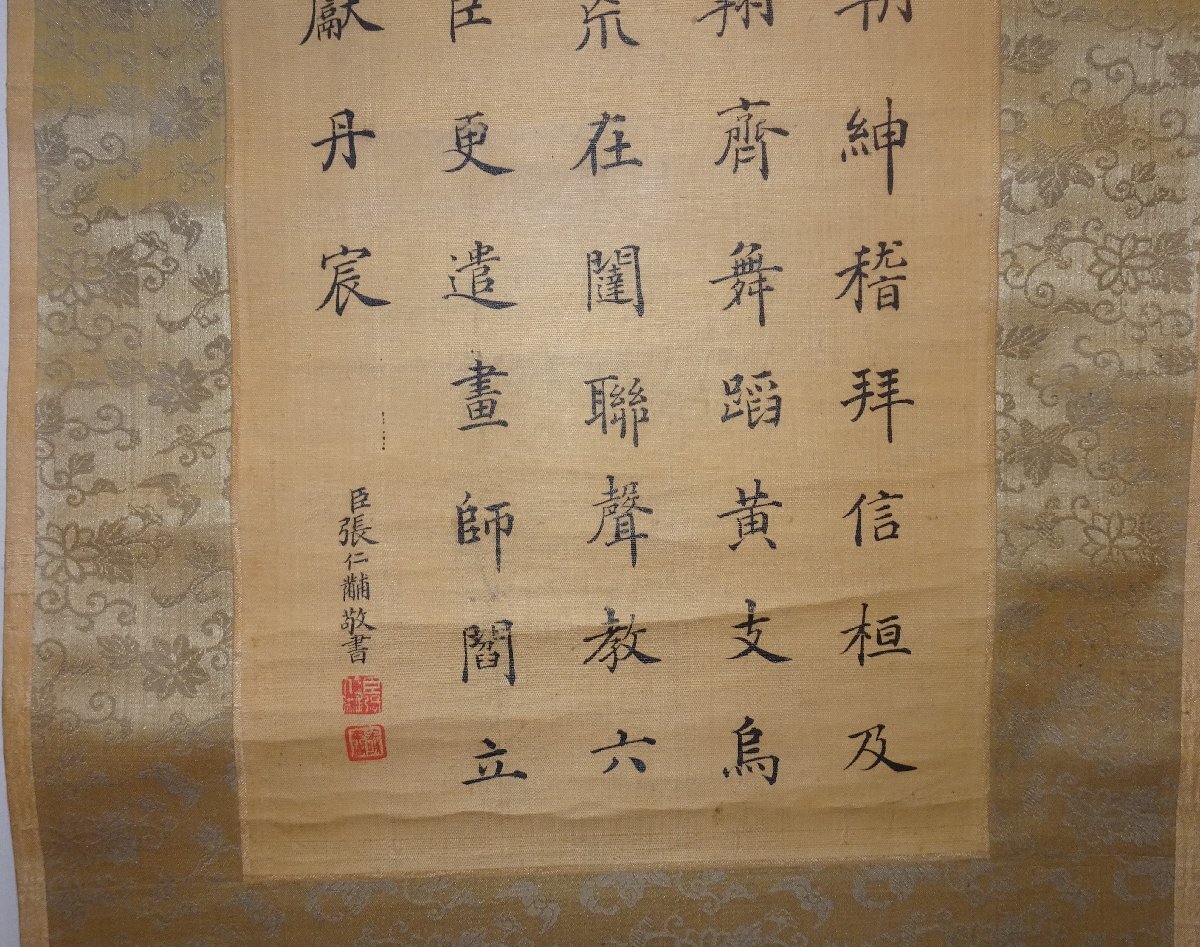 紳稽拜信桓及
翔齊舞蹈黄支烏
在闥聯聲教六
臣更遣畫師閻立
獻丹宸
臣張仁黼敬書